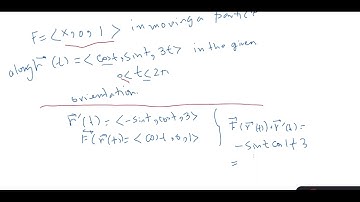 F = <x, 0, 1> in moving a
along r⃗(t) = <cost, sint, 3t> in the given
0 ≤ t ≤ 2π
orientation.
r⃗'(t) = <-sint, cost, 3>
F⃗(r⃗(t)) = <cost, 0, 1>
F⃗(r⃗(t)) · r⃗'(t) =
-sint cost + 3
=